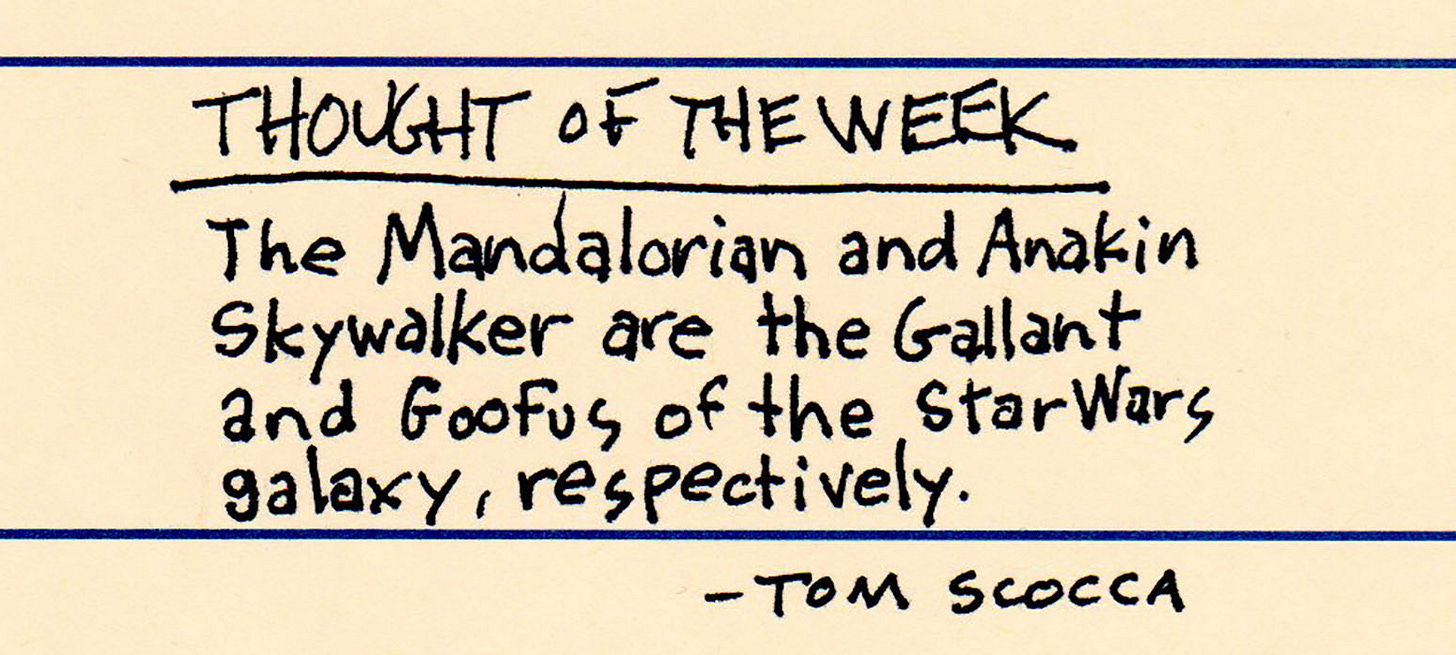 THOUGHT OF THE WEEK
The Mandalorian and Anakin
Skywalker are the Gallant
and Goofus of the Star Wars
galaxy, respectively.
-TOM SCOCCA